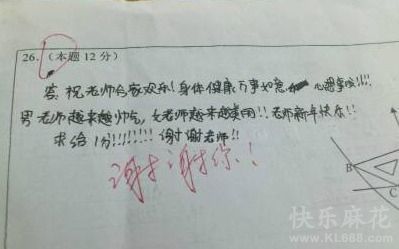 26. (本题 12 分)
答: 祝老师合家欢乐! 身体健康 万事如意 心想事成!!!!
男老师越来越帅气, 女老师越来越美丽!! 老师新年快乐!!
求给 1分!!!!!!!! 谢谢老师!!
谢谢你!!
B
C
快乐麻花
www.KL688.com